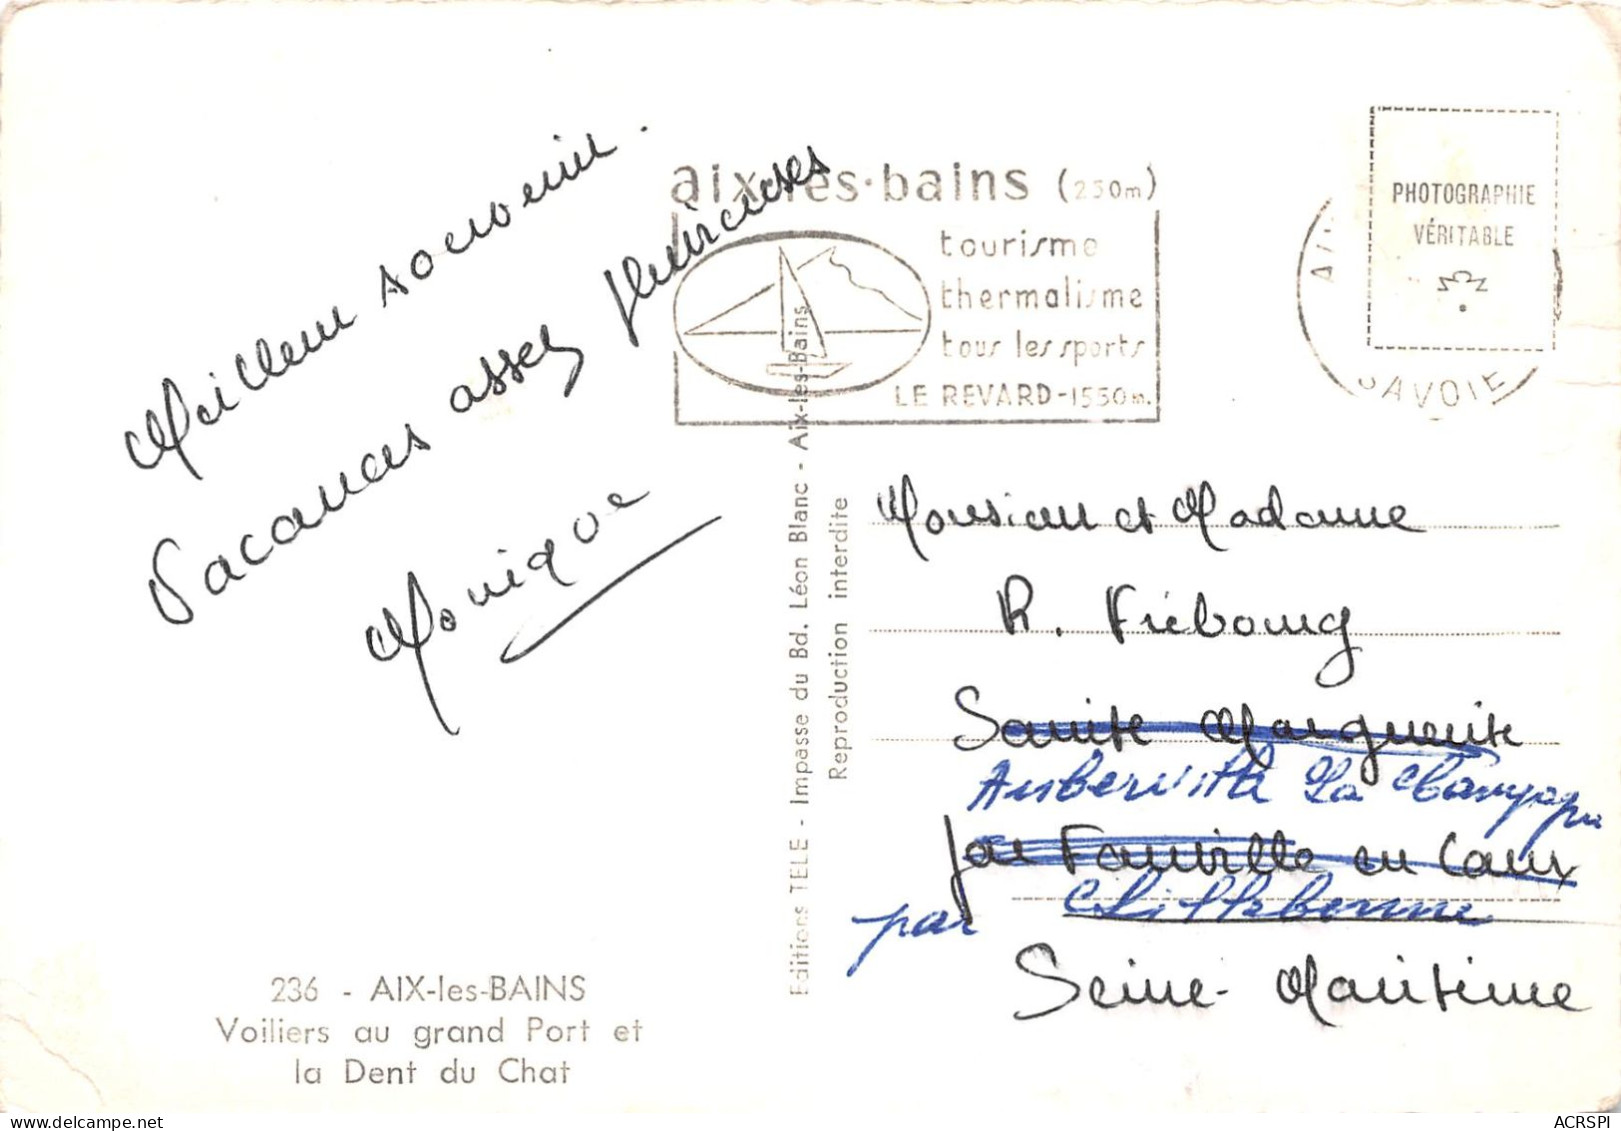 Meilleur souvenir.
Vacances assez pluvieuses
Monique
236 - AIX-les-BAINS
Voiliers au grand Port et
la Dent du Chat
Editions TELE - Impasse du Bd. Léon Blanc - Aix-les-Bains
Reproduction interdite
aix-les-bains (250m)
tourisme
thermalisme
tous les sports
LE REVARD-1550m.
SAVOIE
PHOTOGRAPHIE
VÉRITABLE
Monsieur et Madame
R. Fiébourg
Sainte Marguerite
Auberville La Campagne
par Fauville en Caux
par Lillebonne
Seine-Maritime
ACRSPI